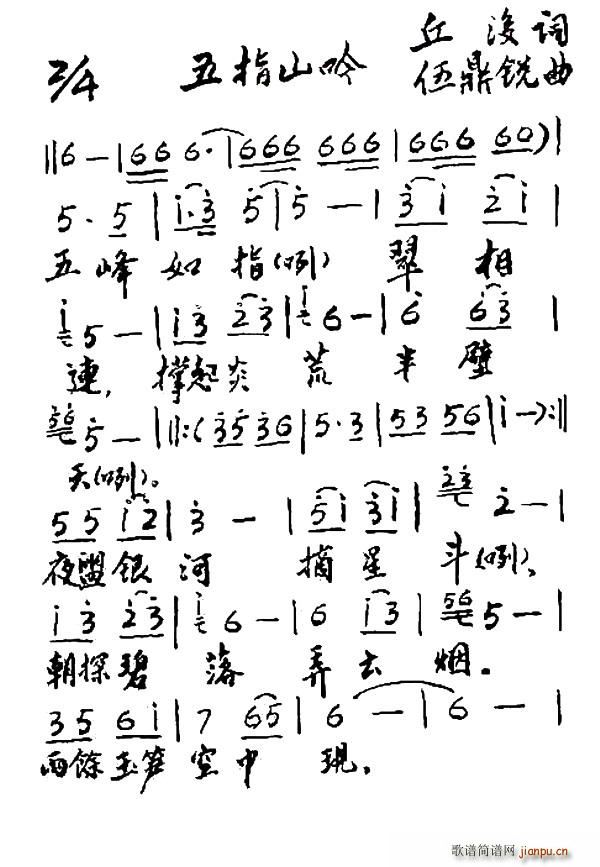 2/4 五指山吟 丘濬词
伍鼎銑曲
‖6 — | 66 6· | 666 666 | 666 60) |
5· 5 | i·3 5 | 5 — | 3i 2i |
五峰如指(咧) 翠相
i 5 — | i3 23 | i 6 — | 6 63 |
連, 撑起炎荒半壁
56 5 — | ‖:(3536 | 5·3 | 53 56 | i —):‖
天(咧)。
55 i2 | 3 — | 5i 3i | 23 2 — |
夜盥銀河 摘星斗(咧)、
i3 23 | i 6 — | 6 i3 | 56 5 — |
朝探碧落弄云烟。
35 6i | 7 65 | 6 — | 6 — |
雨餘玉笋空中現,
歌谱简谱网
jianpu.cn